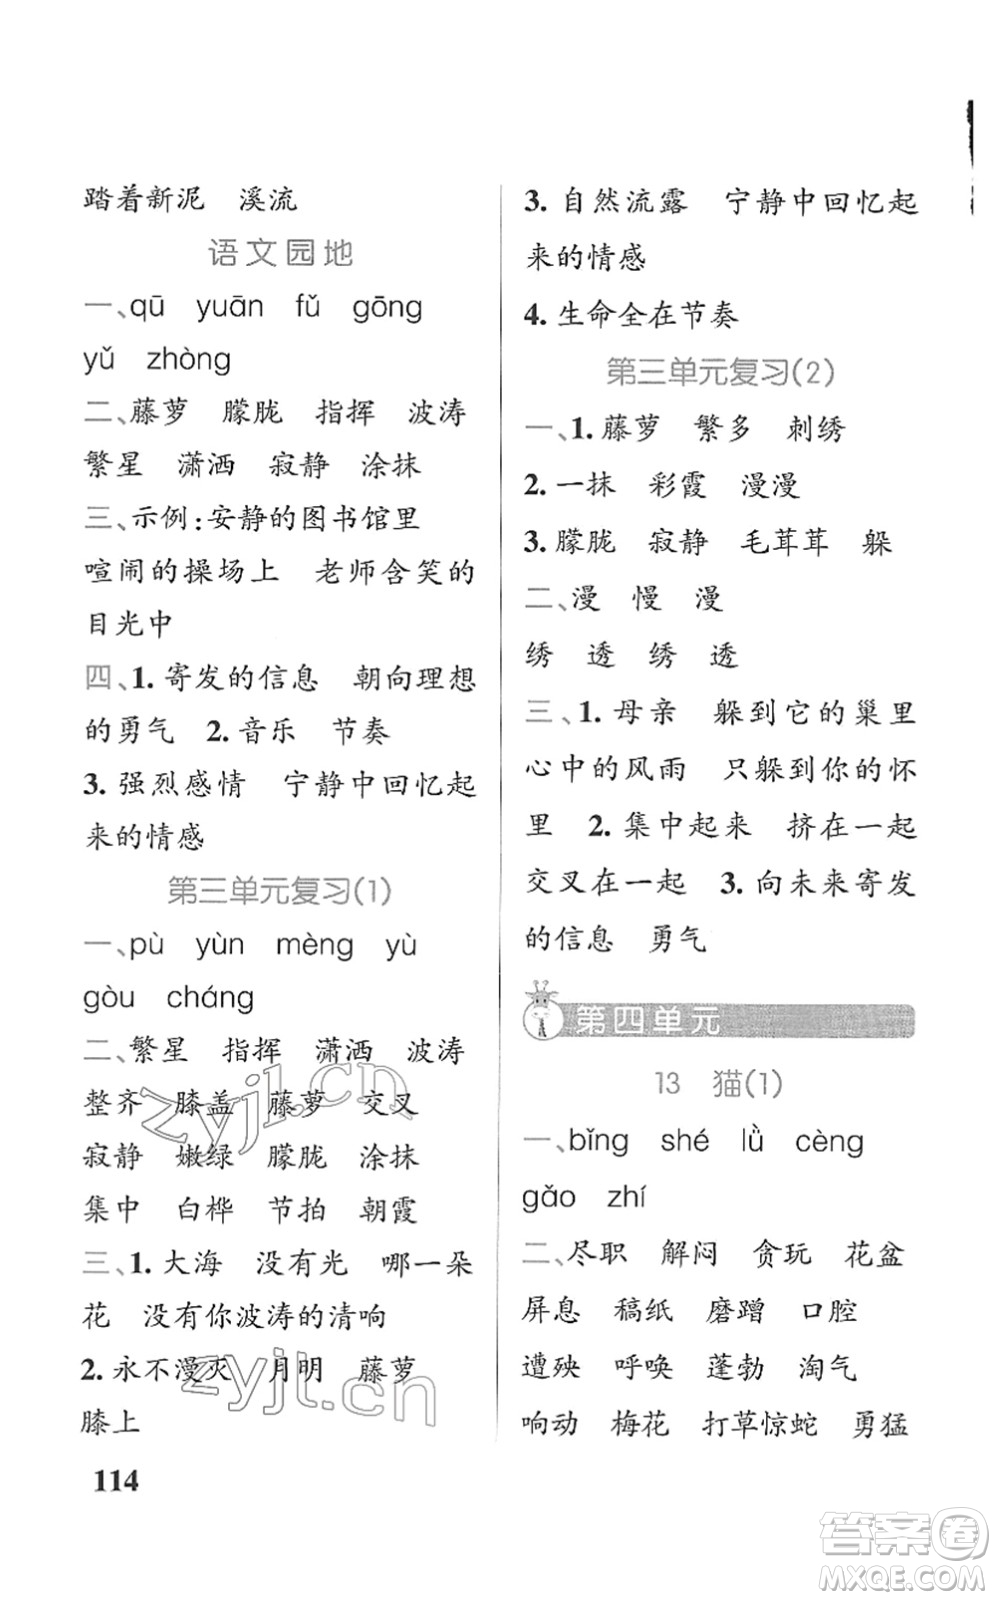 踏着新泥 溪流
语文园地
一、qū yuān fǔ gōng
yǔ zhòng
二、藤萝 朦胧 指挥 波涛
繁星 潇洒 寂静 涂抹
三、示例：安静的图书馆里
喧闹的操场上 老师含笑的
目光中
四、1. 寄发的信息 朝向理想
的勇气 2. 音乐 节奏
3. 强烈感情 宁静中回忆起
来的情感
第三单元复习(1)
一、pù yùn mèng yù
gòu cháng
二、繁星 指挥 潇洒 波涛
整齐 膝盖 藤萝 交叉
寂静 嫩绿 朦胧 涂抹
集中 白桦 节拍 朝霞
三、1. 大海 没有光 哪一朵
花 没有你波涛的清响
2. 永不漫灭 月明 藤萝
膝上
114
3. 自然流露 宁静中回忆起
来的情感
4. 生命全在节奏
第三单元复习(2)
一、1. 藤萝 繁多 刺绣
2. 一抹 彩霞 漫漫
3. 朦胧 寂静 毛茸茸 躲
二、漫 慢 漫
绣 透 绣 透
三、1. 母亲 躲到它的巢里
心中的风雨 只躲到你的怀
里 2. 集中起来 挤在一起
交叉在一起 3. 向未来寄发
的信息 勇气
第四单元
13 猫(1)
一、bǐng shé lǜ cèng
gǎo zhí
二、尽职 解闷 贪玩 花盆
屏息 稿纸 磨蹭 口腔
遭殃 呼唤 蓬勃 淘气
响动 梅花 打草惊蛇 勇猛
zyjl.cn
zyjl.cn
答案圈
MXQE.COM